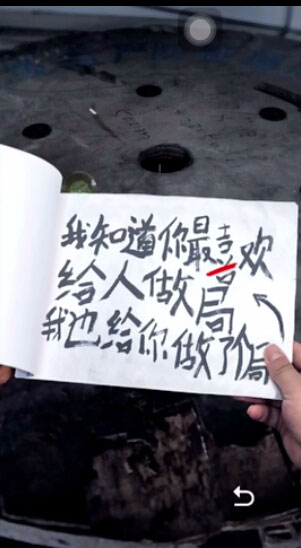 我知道你最喜欢
给人做局
我也给你做了局